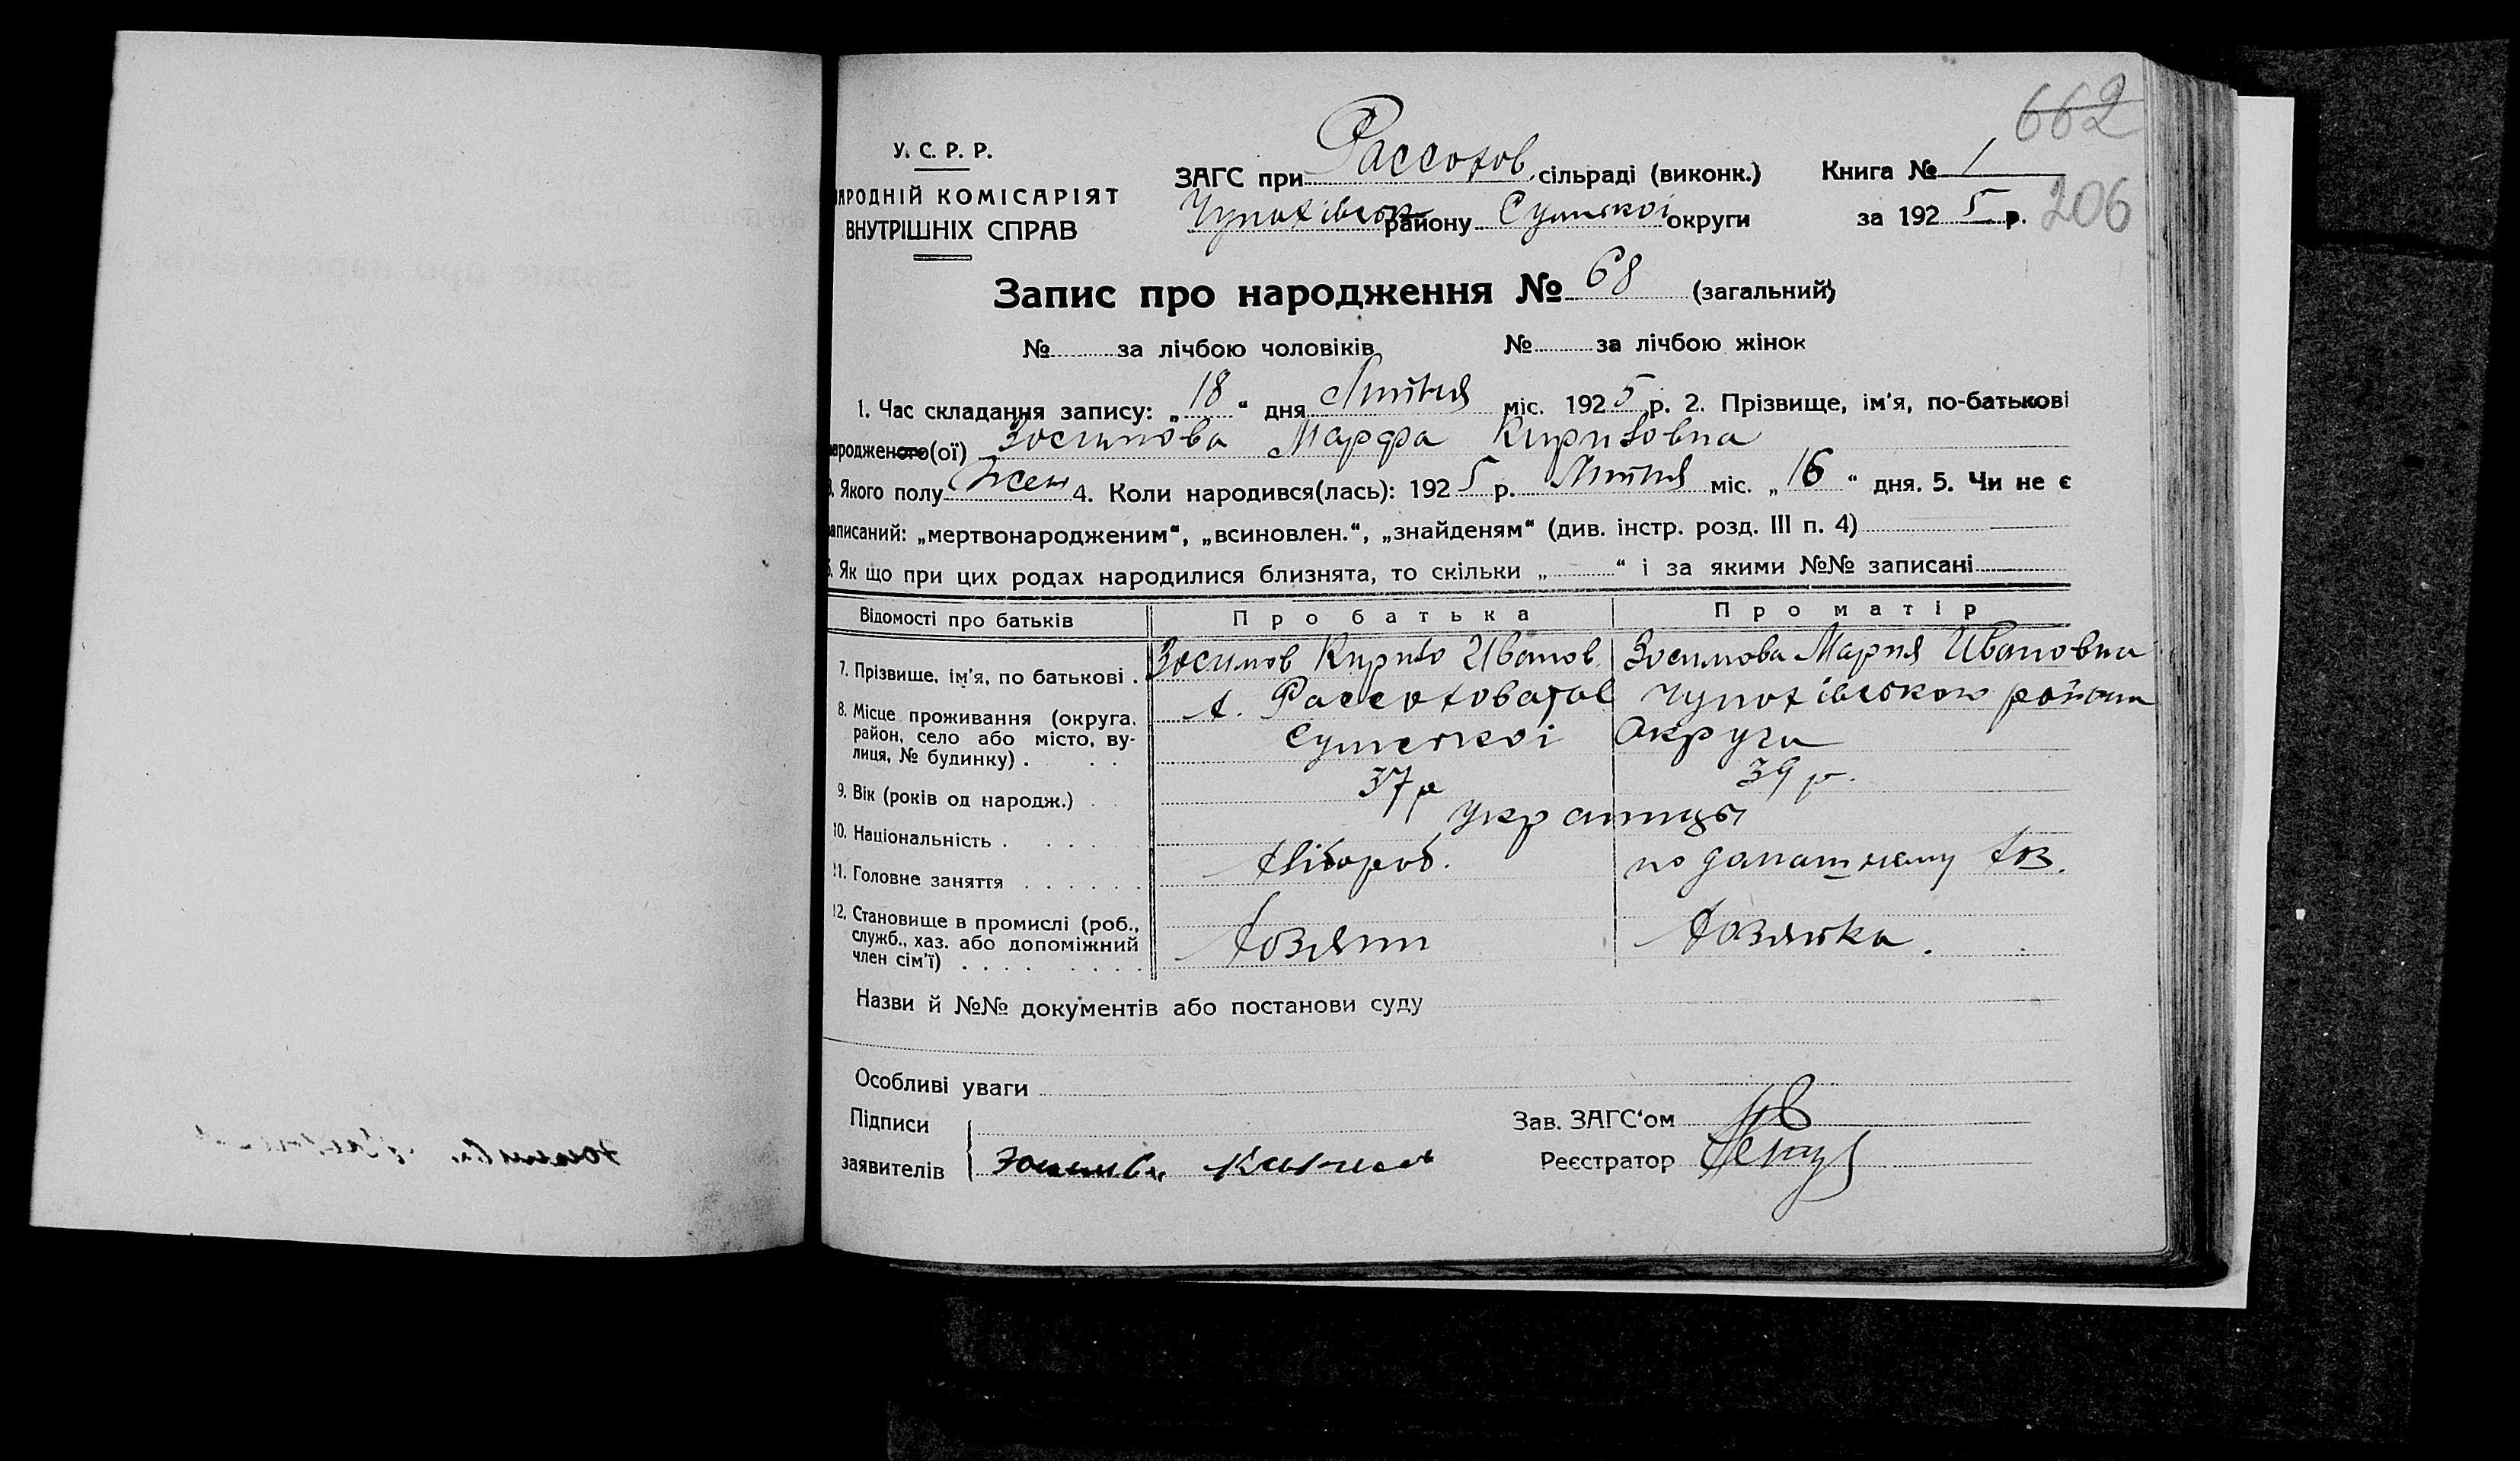 662
У. С. Р. Р.
НАРОДНІЙ КОМІСАРІЯТ
ВНУТРІШНІХ СПРАВ
ЗАГС при Рассохов. сільраді (виконк.) Книга № 1
Чупахівськ району Сумської округи за 1925 р. 206
Запис про народження № 68 (загальний)
№ за лічбою чоловіків № за лічбою жінок
1. Час складання запису: „18“ дня Липня міс. 1925 р. 2. Прізвище, ім'я, по-батькові
народженого(ої) Зосимова Марфа Кириловна
3. Якого полу Жен 4. Коли народився(лась): 1925 р. Липня міс. „16“ дня. 5. Чи не є
записаний: „мертвонародженим“, „всиновлен.“, „знайденям“ (див. інстр. розд. III п. 4)
6. Як що при цих родах народилися близнята, то скільки „ “ і за якими №№ записані
Відомості про батьків Про батька Про матір
7. Прізвище, ім'я, по батькові . Зосимов Кирило Иванов. Зосимова Мария Ивановна
8. Місце проживання (округа, район, село або місто, вулиця, № будинку) . х. Чупахівського району
Сумської Округи
9. Вік (років од народж.) . . 37 р 39 р.
10. Національність . . . . . Украинцы
11. Головне заняття . . . . . . Хлібороб. по домашнему хоз.
12. Становище в промислі (роб., служб., хаз. або допоміжний член сім'ї) . . . . . . . . Хозяин Хозяйка.
Назви й №№ документів або постанови суду
Особливі уваги
Підписи Зав. ЗАГС'ом
заявителів Реєстратор